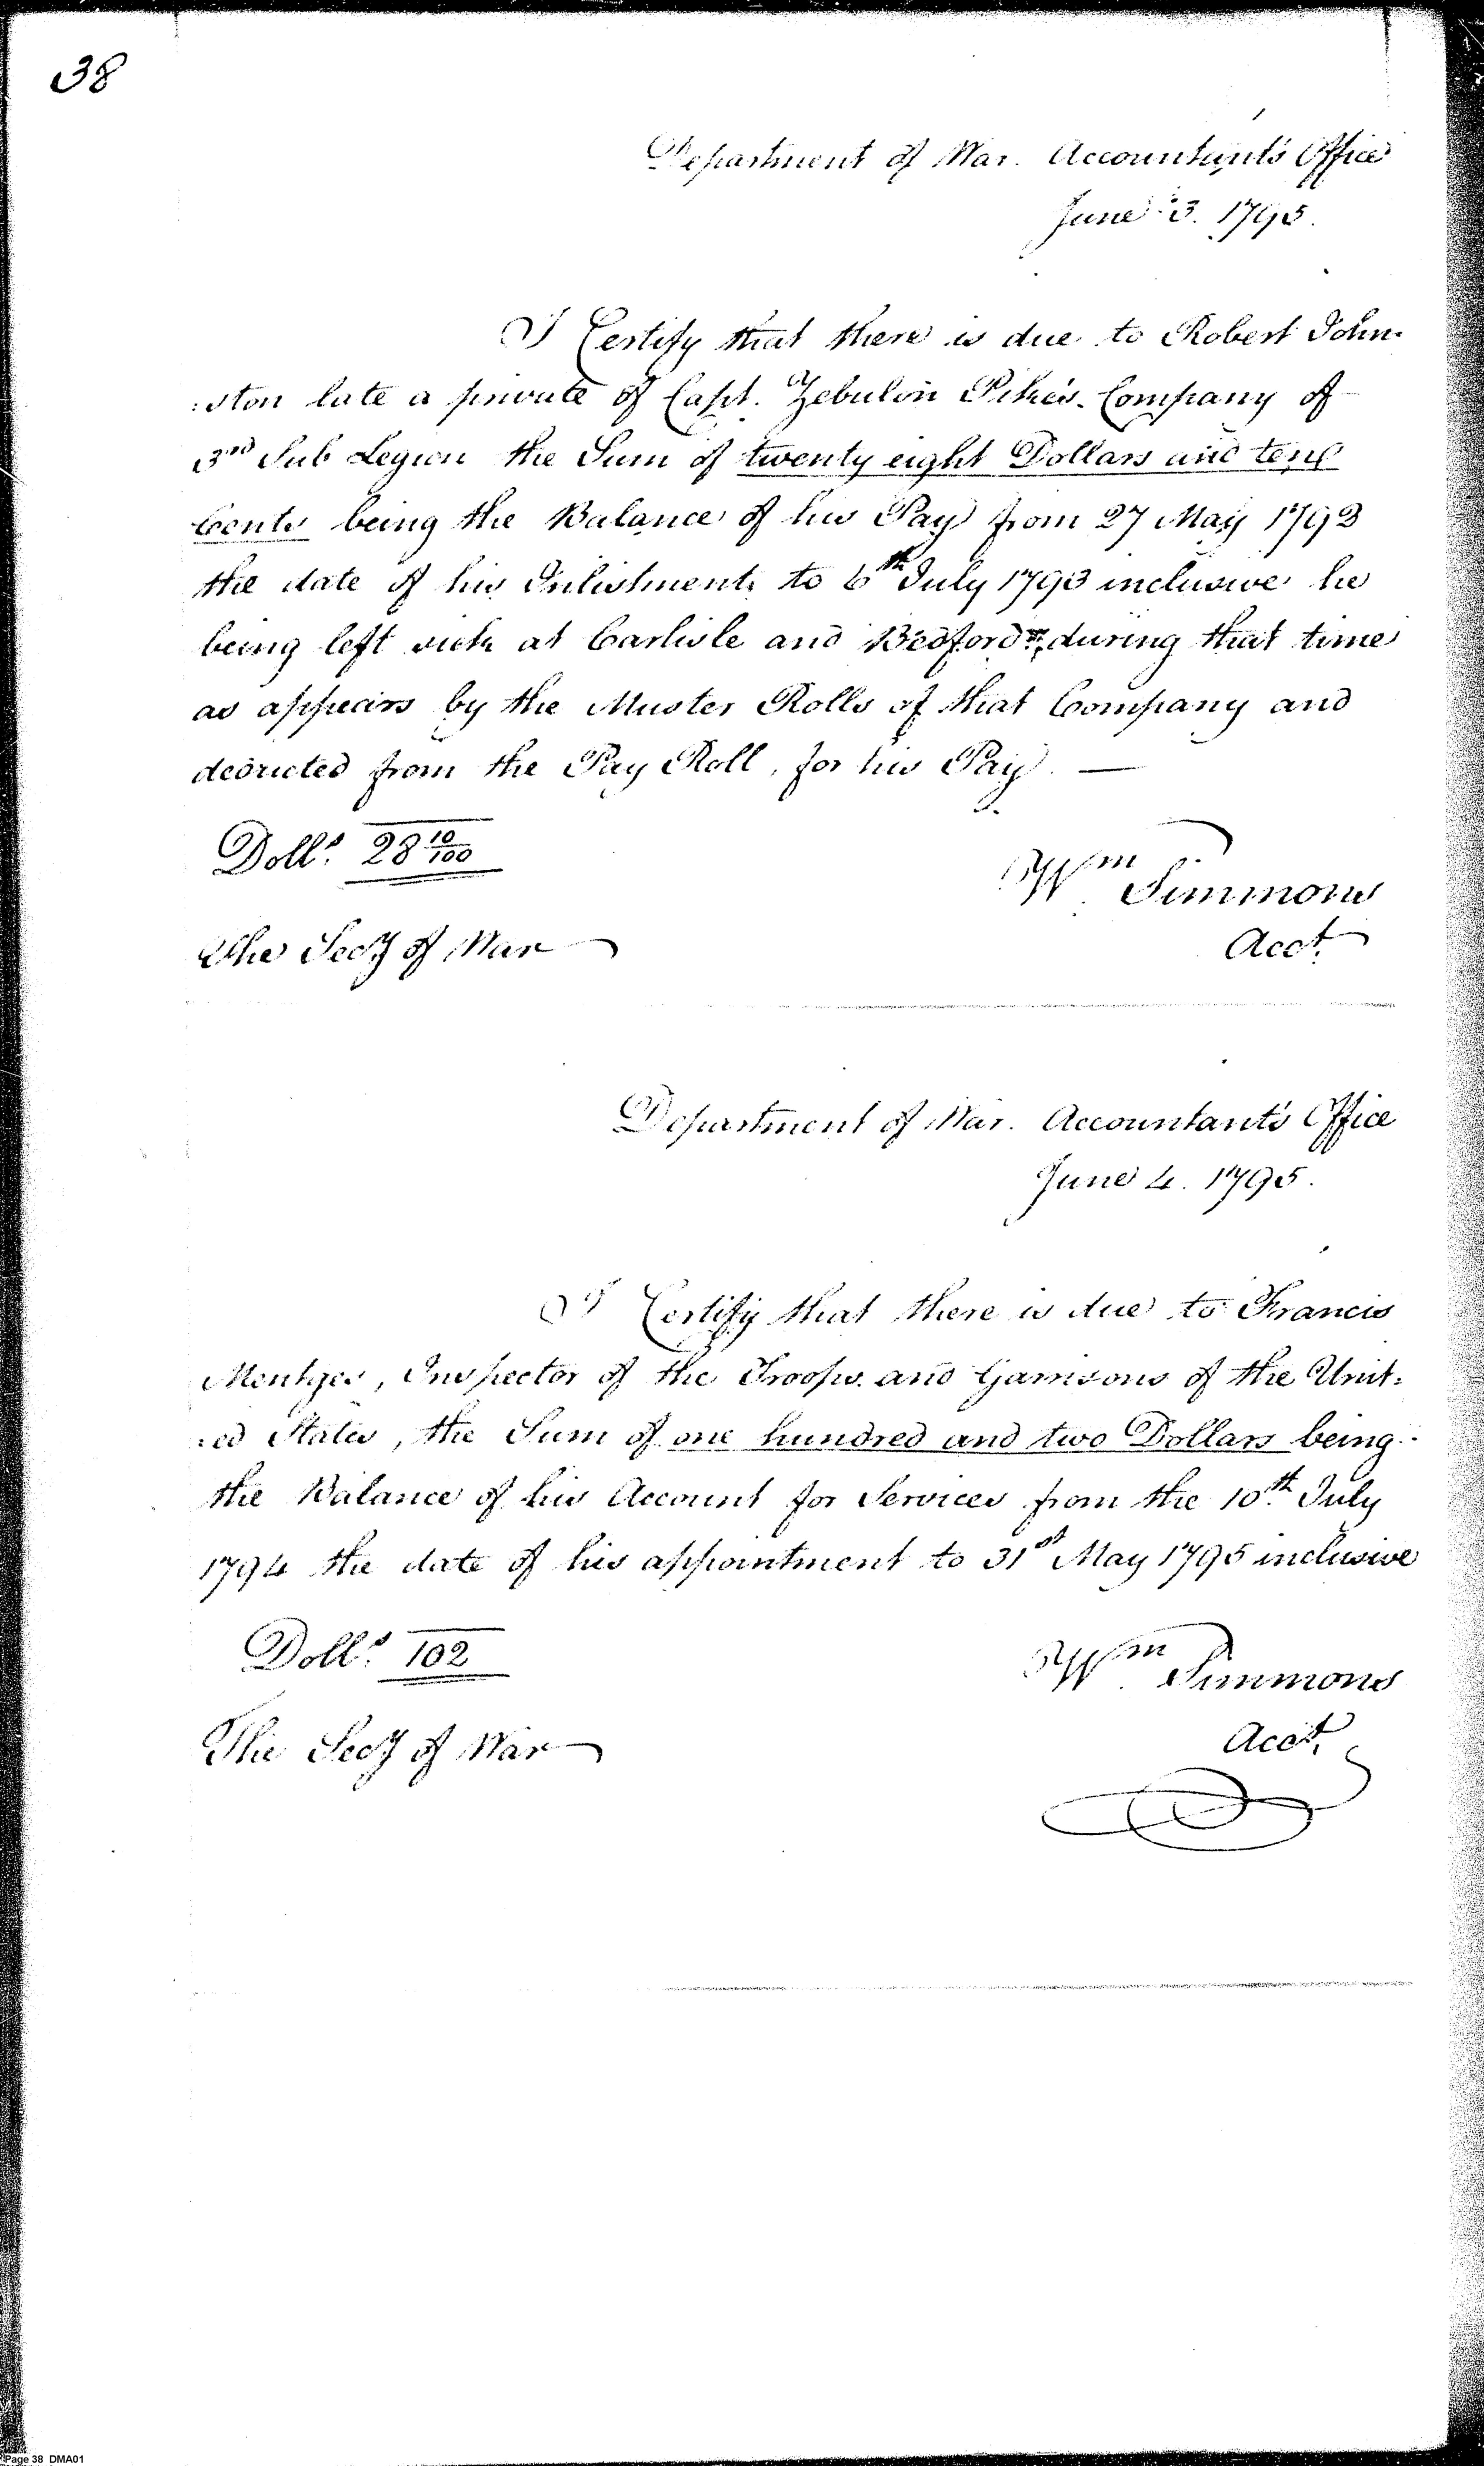 38
Department of War. Accountant's Office
June 3. 1795.
I Certify that there is due to Robert John-
:ston late a private of Capt. Zebulon Pike's Company of
3rd Sub Legion the Sum of twenty eight Dollars and ten
Cents being the Balance of his Pay from 27 May 1792
the date of his Inlistment, to 6th July 1793 inclusive he
being left sick at Carlisle and Bedford, during that time
as appears by the Muster Rolls of that Company and
deducted from the Pay Roll, for his Pay. —
Dolls. 28 10/100
Wm Simmons
The Secy of War
Acct.
Department of War. Accountant's Office
June 4. 1795.
I Certify that there is due to Francis
Mentges, Inspector of the Troops and Garrisons of the Unit:
:ed States, the Sum of one hundred and two Dollars being
the Balance of his Account for Services from the 10th July
1794 the date of his appointment to 31st May 1795 inclusive
Dolls. 102
Wm Simmons
The Secy of War
Acct.
Page 38 DMA01